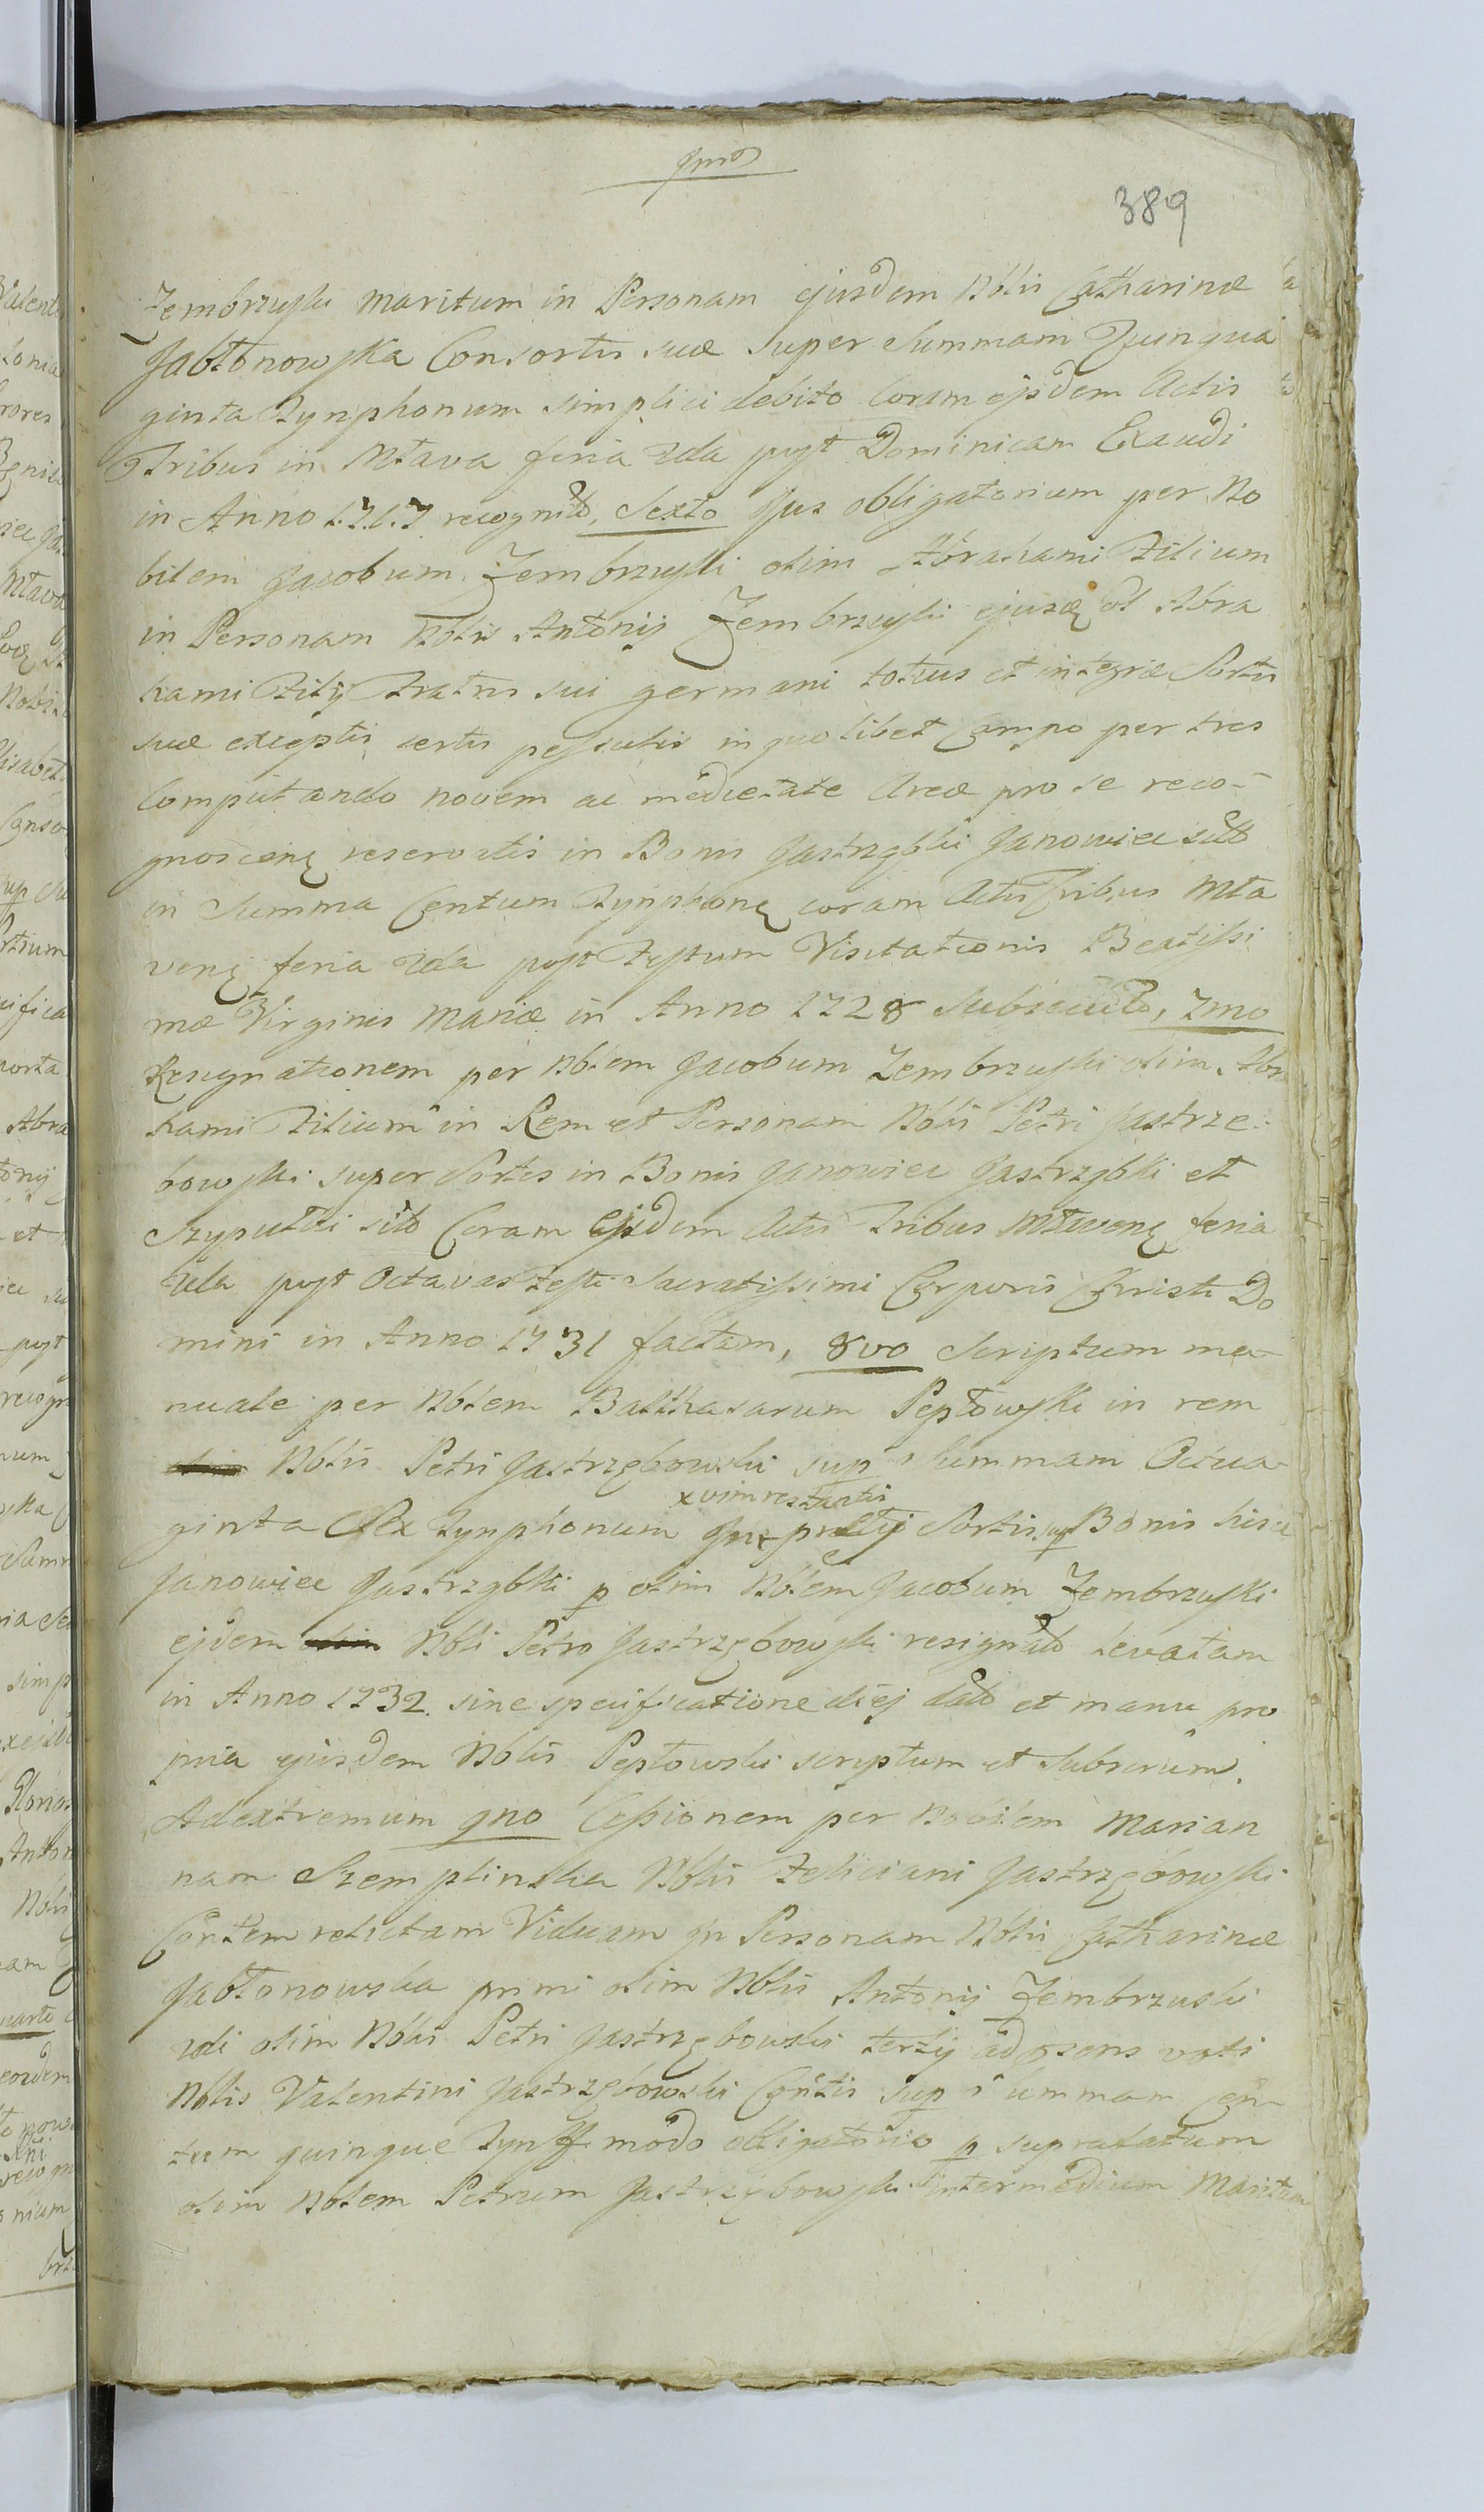 389
Zembrzuski maritum in Personam ejusdem Nblis Catharinæ
Jabłonowska Consortis suæ super Summam Quinqua
ginta Tynphonum simplici debito Coram ejsdem Actis
Tribus in Mława feria 2da post Dominicam Exaudi
in Anno 1717 recognito, Sexto Jus obligatorium per No
bilem Jacobum Zembrzuski olim Abrahami Filium
in Personam Nblis Antonij Zembrzuski ejusdę ol Abra
hami Filij Fratris sui germani totius et integræ Sortis
suæ exceptis certis pessulis in quolibet Campo per tres
Computando novem ac medietate Areæ pro se reco-
gnoscenę reservatis in Bonis Jastrząbki Janowiec sito
in Summa Centum Tynphonę coram Actis Tribus Mła
venę feria 2da post Festum Visitationis Beatissi
mæ Virginis Mariæ in Anno 1728 Subsecuto, 7mo
Resignationem per Nblem Jacobum Zembrzuski olim Abra
hami Filium in Rem et Personam Nblis Petri Jastrze-
bowski super Sortes in Bonis Janowiec Jastrząbki et
Szypułki sito Coram Ejsdem Actis Tribus Mlavenę feria
2da post Octavas Festi Sacratissimi Corporis Christi Do
mini in Anno 1731 factam, 8vo Scriptum ma-
nuale per Nblem Balthasarum Pepłowski in rem
Nblis Petri Jastrzębowski sup Summam Octua-
ginta Sex Tynphonum pretij Sortis sup Bonis hisce
Janowiec Jastrząbki p olim Nblem Jacobum Zembrzuski
ejdem Nbli Petro Jastrzębowski resignato levatam
in Anno 1732 sine specificatione diej dato et manu pro
pria ejusdem Nblis Pepłowski scriptum et Subscrium.
Adextremum 9no Cessionem per Nobilem Marian
nam Szemplinska Nblis Feliciani Jastrzębowski
Contem relictam Viduam in Personam Nblis Catharinæ
Jabłonowska primi olim Nblis Antonij Zembrzuski
2di olim Nblis Petri Jastrzębowski tertij ad præns voti
Nblis Valentini Jastrzębowski Contis sup Summam Cen-
tum quinque Tynff modo obligatorio p supralatum
olim Nblem Petrum Jastrzębowski intermedium Maritum